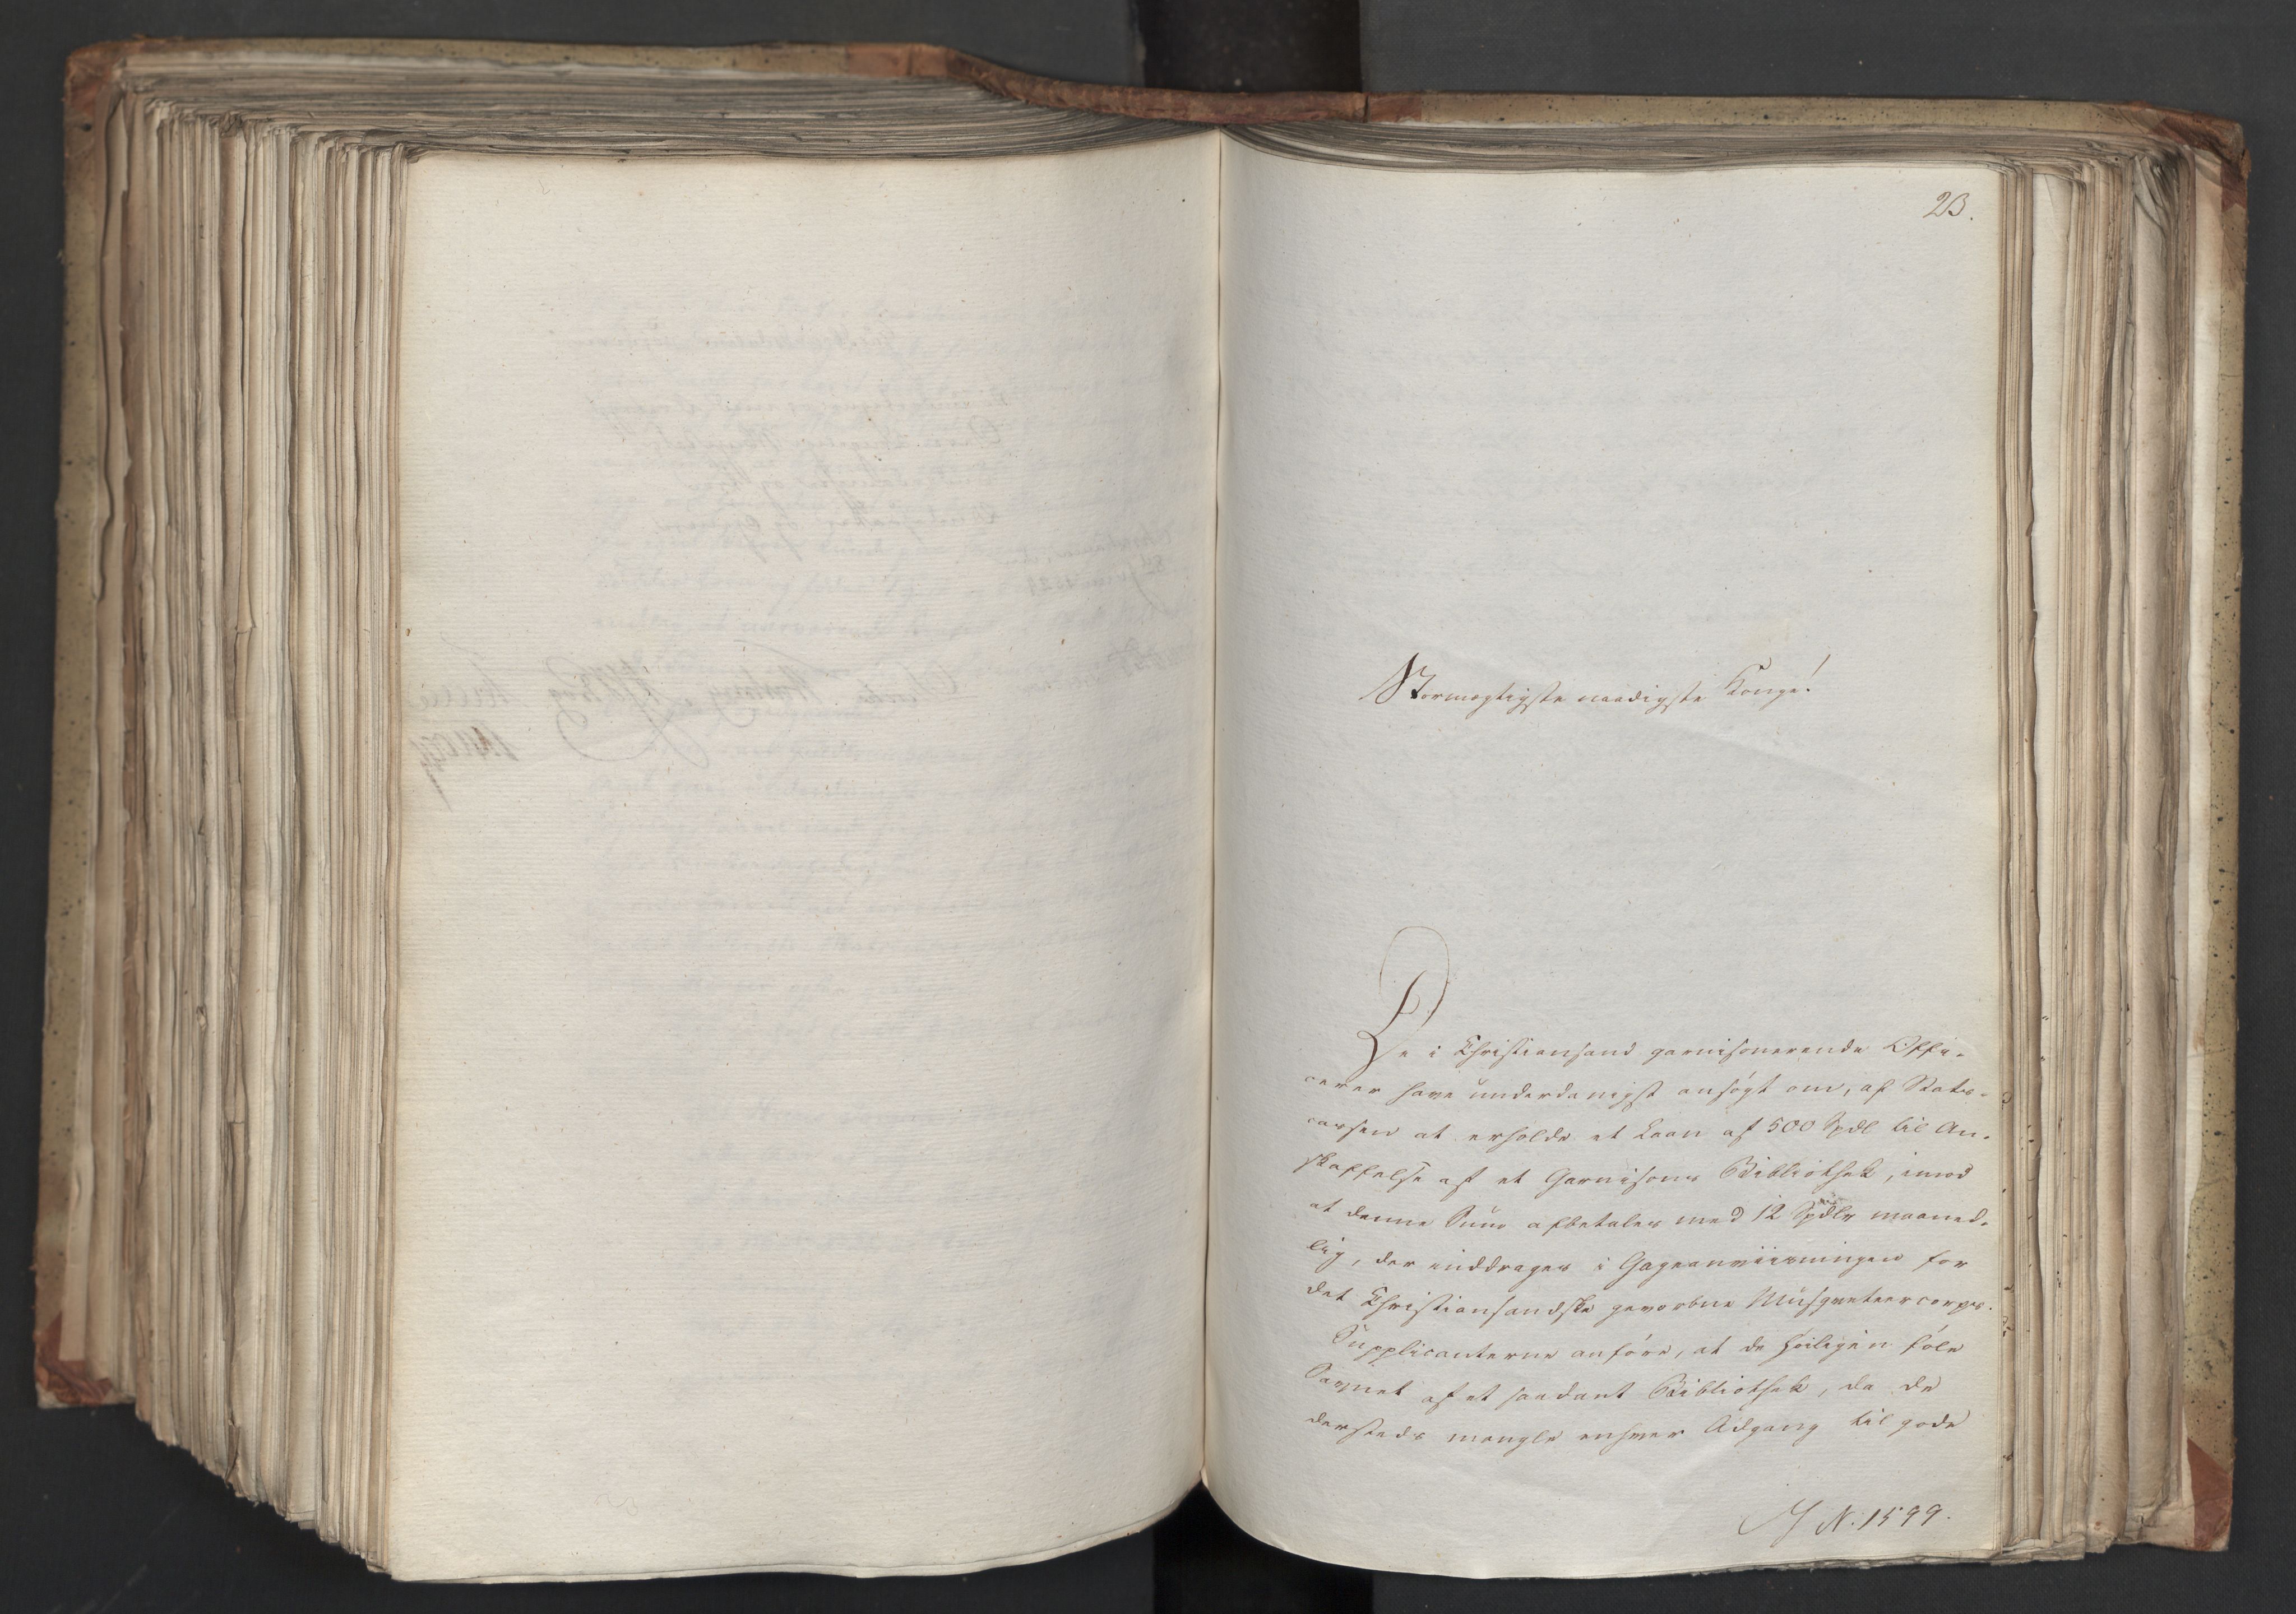 23.
Stormægtigste naadigste Konge!
De i Christiansand garnisonerende Offi-
cerer have underdanigst ansøgt om, af Stats-
cassen at erholde et Laan af 500 Spdl til An-
skaffelse af et Garnisons Bibliothek, imod
at denne Sum afbetales med 12 Spdlr maaned-
lig, der inddrages i Gageanviisningen for
det Christiansandske gevorbne Musqueteercorps.
Supplicanterne anføre, at de høiligen føle
Savnet af et saadant Bibliothek, da de
dersteds mangle enhver Adgang til gode
J N. 1599.